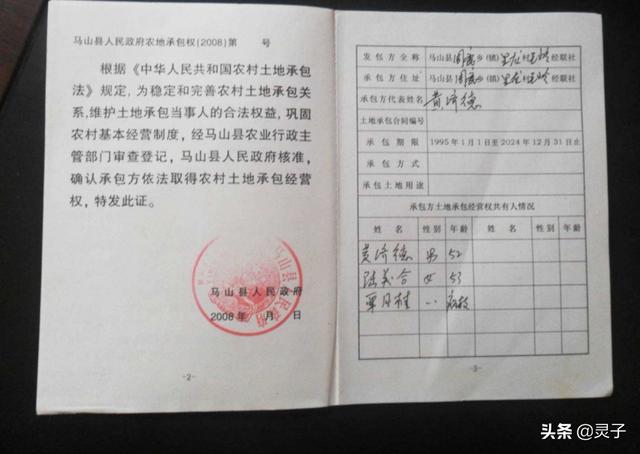 马山县人民政府农地承包权(2008)第 号
根据《中华人民共和国农村土地承包
法》规定,为稳定和完善农村土地承包关
系,维护土地承包当事人的合法权益,巩固
农村基本经营制度,经马山县农业行政主
管部门审查登记,马山县人民政府核准,
确认承包方依法取得农村土地承包经营
权,特发此证。
马山县人民政府
2008年 月 日
-2-
发包方全称 马山县周鹿乡(镇) 村 经联社
承包方住址 马山县周鹿乡(镇) 村 经联社
承包方代表姓名 黄济德
土地承包合同编号
承包期限 1995年1月1日至2024年12月31日止
承包方式
承包土地用途
承包方土地承包经营权共有人情况
姓名 性别 年龄 姓名 性别 年龄
黄济德 男 52
陆 合 女 53
月桂
-3-
马山县人民政府
头条@灵子